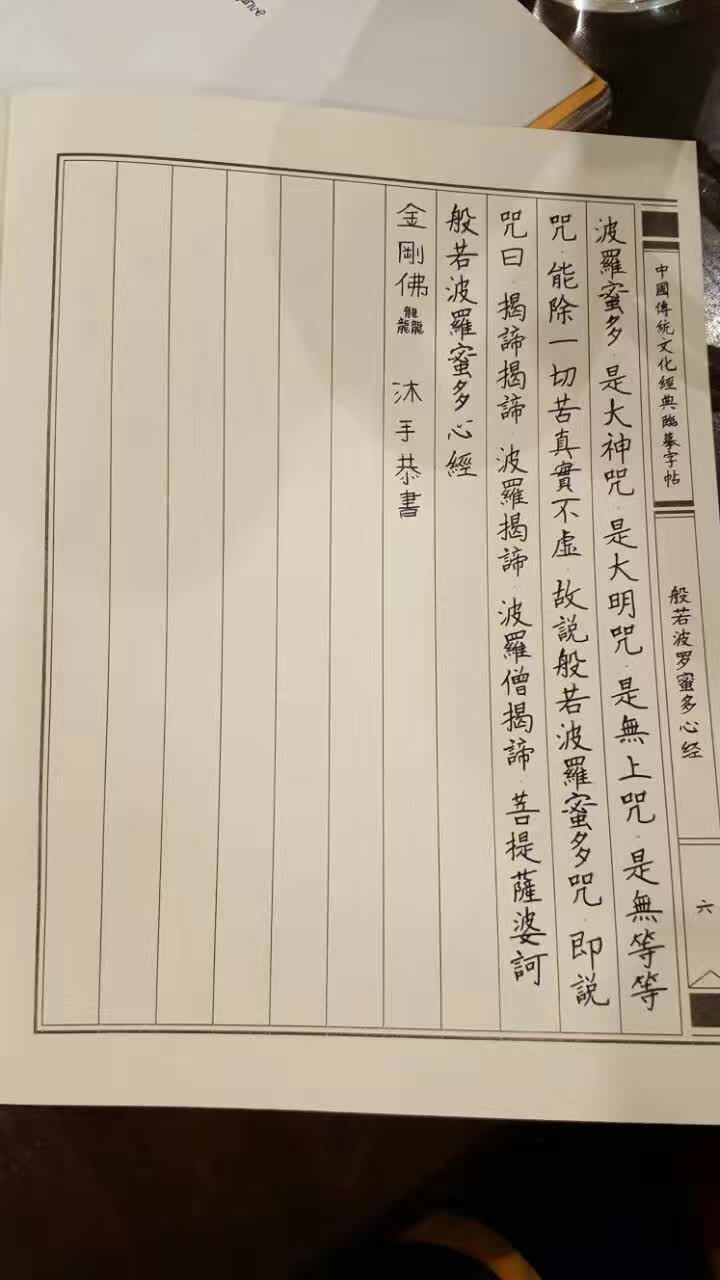 中國傳統文化經典臨摹字帖
般若波罗蜜多心经
六
波羅蜜多·是大神咒·是大明咒·是無上咒·是無等等
咒·能除一切苦真實不虛·故說般若波羅蜜多咒·即說
咒曰·揭諦揭諦·波羅揭諦·波羅僧揭諦·菩提薩婆訶
般若波羅蜜多心經
金剛佛龘 沐手恭書